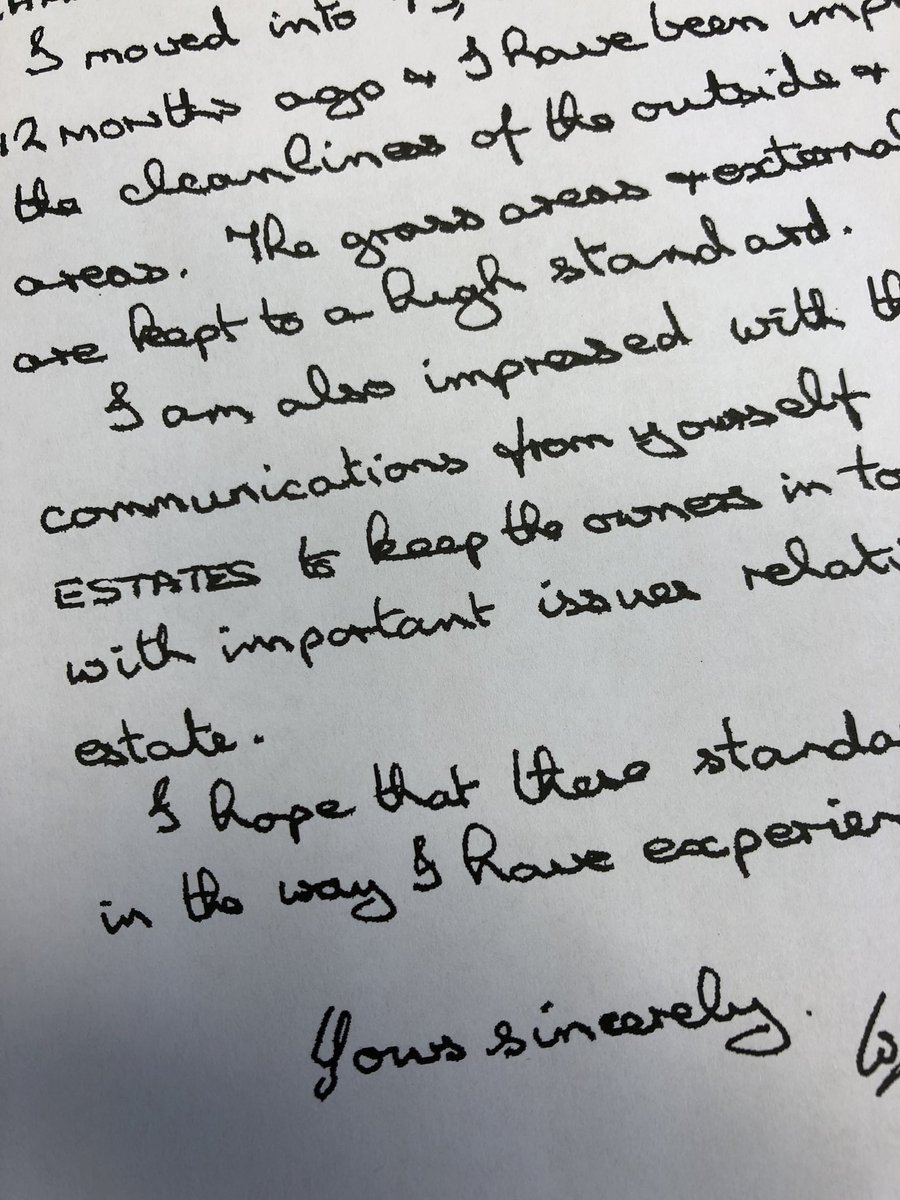 I moved into
12 months ago & I have been
the cleanliness of the outside &
areas. The grass areas & external
are kept to a high standard.
I am also impressed with
communications from yourself
ESTATES to keep the owners in
with important issues
estate.
I hope that these
in the way I have
Yours sincerely.